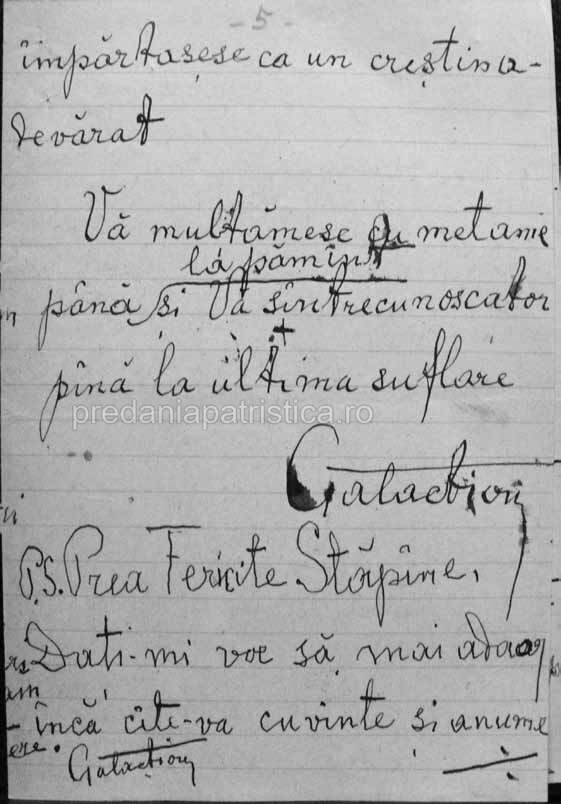 - 5 -
împărtașesc ca un creștin a-
devărat
Vă multămesc cu metanie
la pămînt
până și Vă sînt recunoscator
pînă la ultima suflare
predaniapatristica.ro
Galaction
P.S. Prea Fericite Stăpîne,
Dati-mi voe să mai adaog
încă cîte-va cuvinte și anume
Galaction